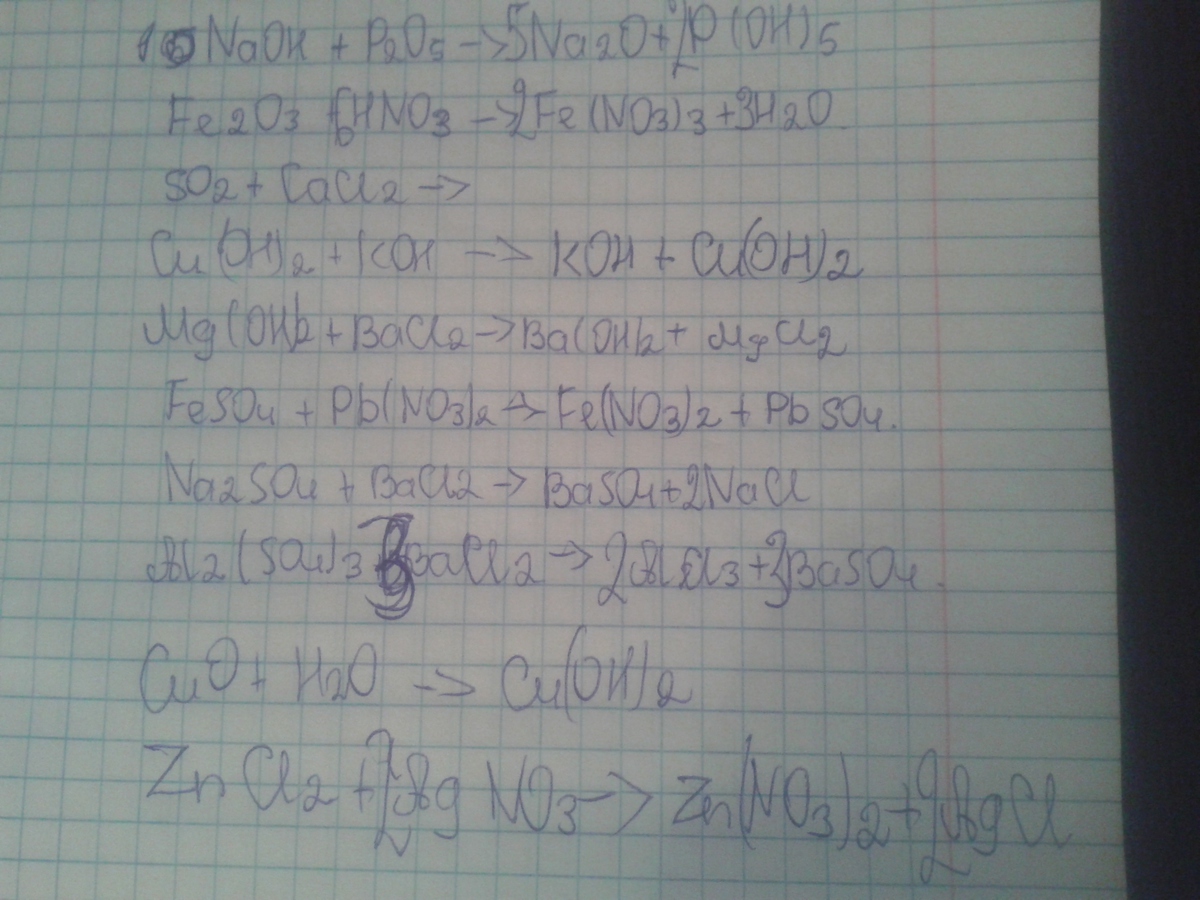 10NaOH + P2O5 -> 5Na2O + 2P(OH)5
Fe2O3 6HNO3 -> 2Fe(NO3)3 + 3H2O
SO2 + CaCl2 ->
Cu(OH)2 + KOH -> KOH + Cu(OH)2
Mg(OH)2 + BaCl2 -> Ba(OH)2 + MgCl2
FeSO4 + Pb(NO3)2 -> Fe(NO3)2 + PbSO4.
Na2SO4 + BaCl2 -> BaSO4 + 2NaCl
Al2(SO4)3 3BaCl2 -> 2AlCl3 + 3BaSO4.
CuO + H2O -> Cu(OH)2
ZnCl2 + 2AgNO3 -> Zn(NO3)2 + 2AgCl